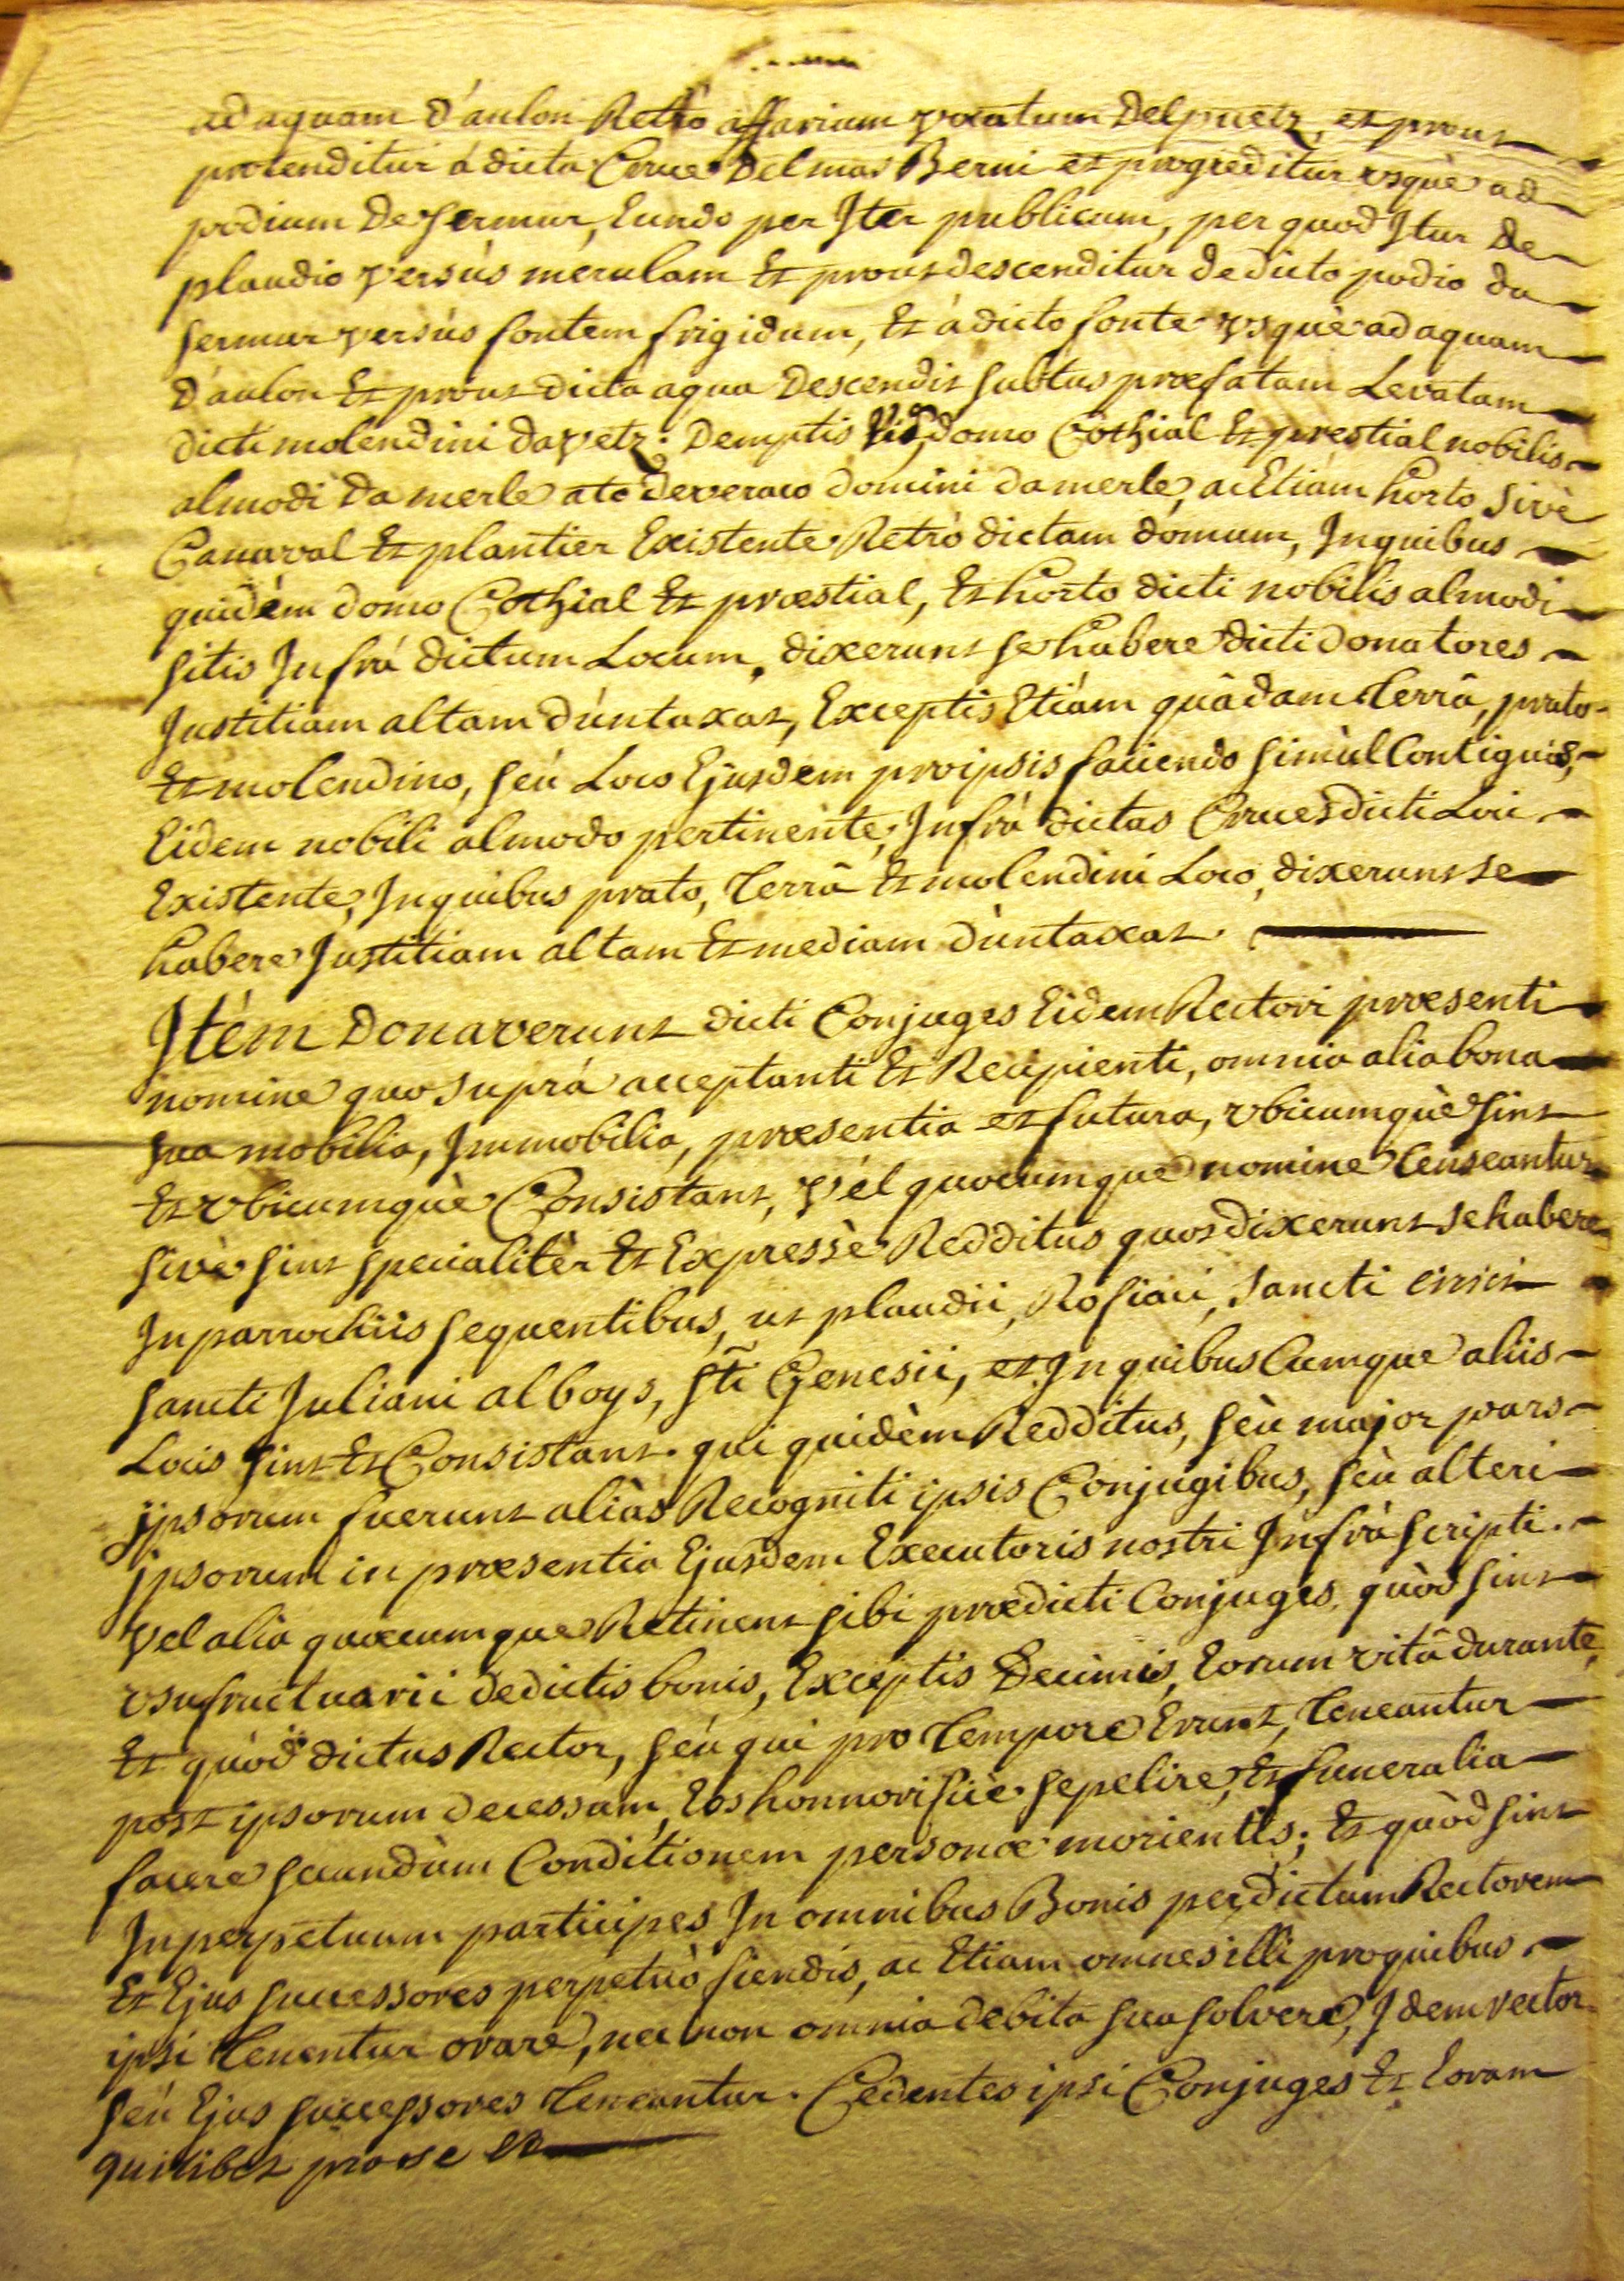 ad aquam d'aulon Retrò affarium vocatum Delpuetz, et prout
protenditur á dicta Cruce Delmas Berni et progreditur vsquè ad
podium De sermur, Eundo per Iter publicum, per quod Itur De
plaudio versùs merulam Et prout descenditur de dicto podio da
sermur versùs fontem frigidum, Et à dicto fonte vsquè ad aquam
D'aulon Et prout dicta aqua Descendit subtus præfatam Levatam
dicti molendini davetz: Demptis domo Cothial Et prestial nobilis
almodi da merle ato deveraco domini da merle, ac Etiam horto sivè
Canaval Et plantier Existente Retrò dictam domum, In quibus
quidèm domo Cothial Et præstial, Et horto dicti nobilis almodi
sitis Infrá dictum Locum, dixerunt se habere dicti Donatores
Justitiam altam dùntaxat, Exceptis Etiàm quâdam terrâ, prato
Et molendino, sèu Loco Ejusdem pro ipsis faciendo simùl Contiguis,
Eidem nobili almodo pertinènte, Infrà dictas Cruces dicti Loci
Existente, In quibus prato, terrâ Et molendini Loco, dixerunt se
habere Justitiam altam Et mediam dùntaxat.
Itèm Donaverunt dicti Conjuges Eidem Rectori præsenti
nomine quo suprá acceptanti Et Recipienti, omnia alia bona
sua mobilia, Immobilia, præsentia et futura, vbicumquè sint
Et vbicumquè Consistant, vèl quocumque nomine Censeantur
sivè sint specialitèr Et Expressè Redditus quos dixerunt se habere
In parrochiis sequentibus, ut plaudii, Rosiaci, Sancti cirici
sancti Juliani alboys, sti Genesii, et In quibus Cumque aliis
Locis sint Et Consistant. qui quidèm Redditus, sèu major pars
ipsorum fuerunt aliàs Recogniti ipsis Conjugibus, sèu alteri
ipsorum in præsentia Ejusdem Executoris nostri Infrà scripti.
vel alia quæcumque Retinent sibi prædicti Conjuges, quòd sint
vsufructuarii de dictis bonis, Exceptis Decimis, Eorum vitâ durante,
Et quòd dictus Rector, sèu qui pro tempore Erunt, teneantur
post ipsorum decessum, Eos honnorificè sepelire, Et funeralia
facere secundùm Conditionem personæ morientis; Et quòd sint
In perpetuum participes In omnibus Bonis per dictum Rectorem
Et Ejus successores perpetuò fiendis, ac Etiam omnes illi pro quibus
ipsi tenentur orare, nec non omnia debita sua solvere, Idem rector
sèu Ejus successores teneantur. Cedentes ipsi Conjuges Et Eorum
quilibet pro se &